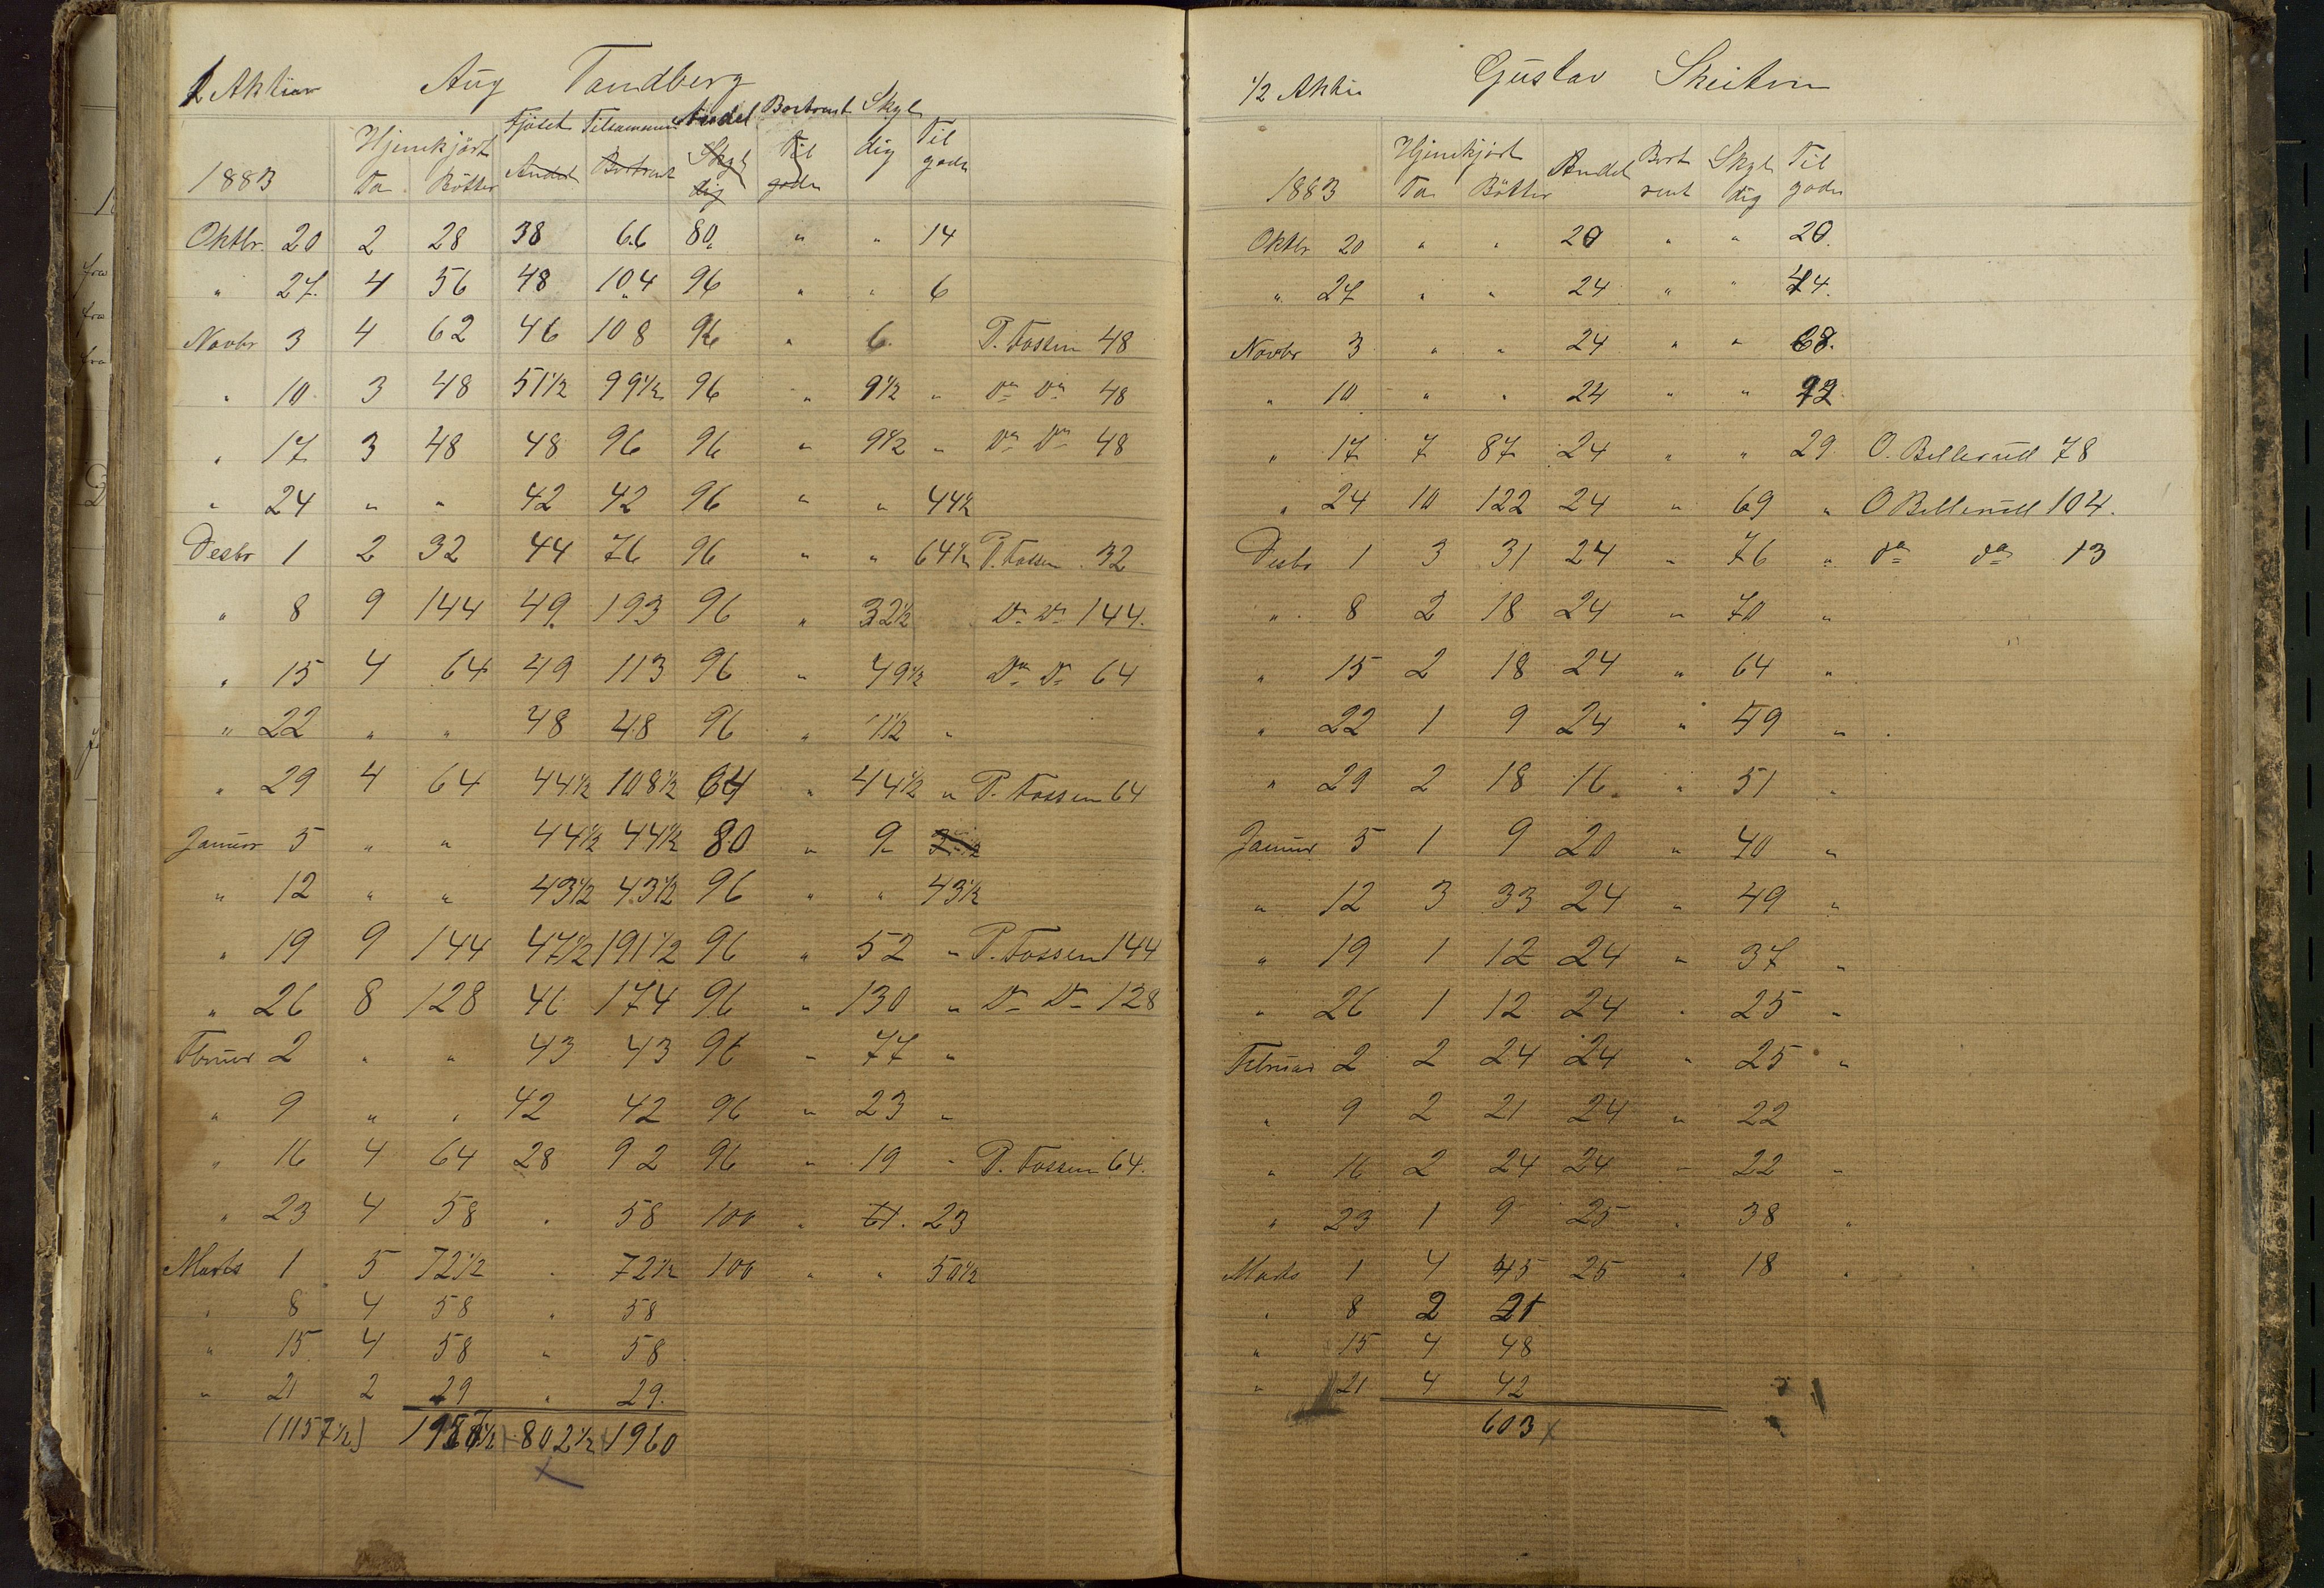 2 Aktier Aug Tandberg
Fjöset Tilsammen Andel Bortrent Skyl Til
Hjemkjört dig gode
1883 Tø Bötter Andel Bortrent Skyl dig Til gode
Oktbr. 20 2 28 38 66 80 " " 14
" 27. 4 56 48 104 96 " " 6
Novbr 3 4 62 46 108 96 " 6 P. Fossen 48
" 10 3 48 51½ 99½ 96 " 9½ " Do Do 48
" 17 3 48 48 96 96 " 9½ " Do Do 48
" 24 " " 42 42 96 " " 44½
Desbr 1 2 32 44 76 96 " " 64½ P. Fossen 32
" 8 9 144 49 193 96 " 32½ Do Do 144.
" 15 4 64 49 113 96 " 49½ Do Do 64
" 22 " " 48 48 96 " 1½ "
" 29 4 64 44½ 108½ 64 " 44½ " P. Fossen 64
Januar 5 " " 44½ 44½ 80 " 9
" 12 " " 43½ 43½ 96 " " 43½
" 19 9 144 47½ 191½ 96 " 52 " P. Fossen 144
" 26 8 128 46 174 96 " 130 " Do Do 128
Februar 2 " " 43 43 96 " 77 "
" 9 " " 42 42 96 " 23 "
" 16 4 64 28 92 96 " 19 " P. Fossen 64.
" 23 4 58 " 58 100 " 23
Marts 1 5 72½ " 72½ 100 " " 50½
" 8 4 58 " 58
" 15 4 58 " 58
" 21 2 29 " 29.
(1157½) 1157½ 802½ 1960
½ Aktie Gustav Skeitven
Hjemkjört Andel Bort Skyl Til
1883 Tø Bötter rent dig gode
Oktbr 20 " " 20 " " 20.
" 27 " " 24 " " 44.
Novbr 3 " " 24 " " 68.
" 10 " " 24 " " 92
" 17 7 87 24 " " 29 O. Bellerud 78
" 24 10 122 24 " 69 " O Bellerud 104.
Desbr 1 3 31 24 " 76 " do do 13
" 8 2 18 24 " 70 "
" 15 2 18 24 " 64 "
" 22 1 9 24 " 49 "
" 29 2 18 16 " 51 "
Januar 5 1 9 20 " 40 "
" 12 3 33 24 " 49 "
" 19 1 12 24 " 37 "
" 26 1 12 24 " 25 "
Februar 2 2 24 24 " 25 "
" 9 2 21 24 " 22
" 16 2 24 24 " 22 "
" 23 1 9 25 " 38 "
Marts 1 4 45 25 " 18 "
" 8 2 21
" 15 4 48
" 21 4 42
603 x